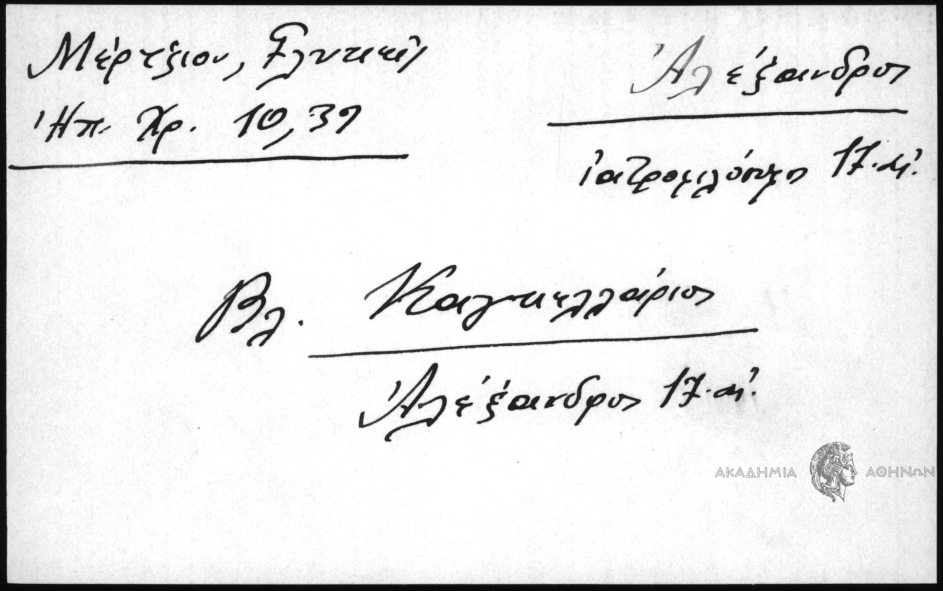 Μέρτζιου, Γλυκκῆς
Ἠπ. Χρ. 10, 39
Ἀλέξανδρος
ἰατροφιλόσοφος 17. αἰ.
Βλ. Καγκελλάριος
Ἀλέξανδρος 17. αἰ.
ΑΚΑΔΗΜΙΑ ΑΘΗΝΩΝ